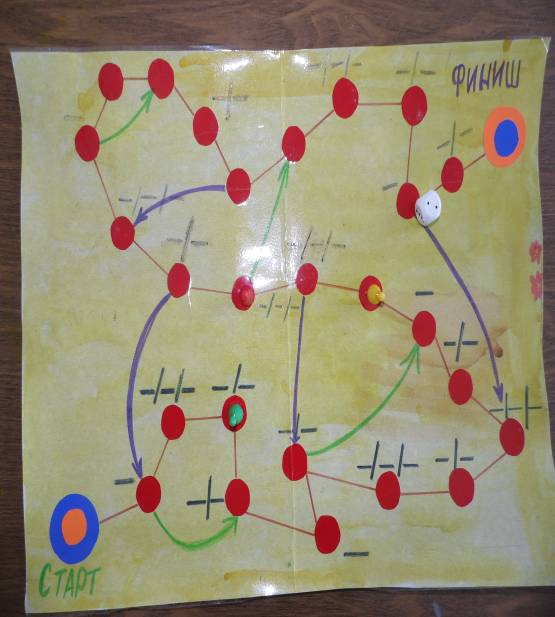 ФИНИШ
СТАРТ